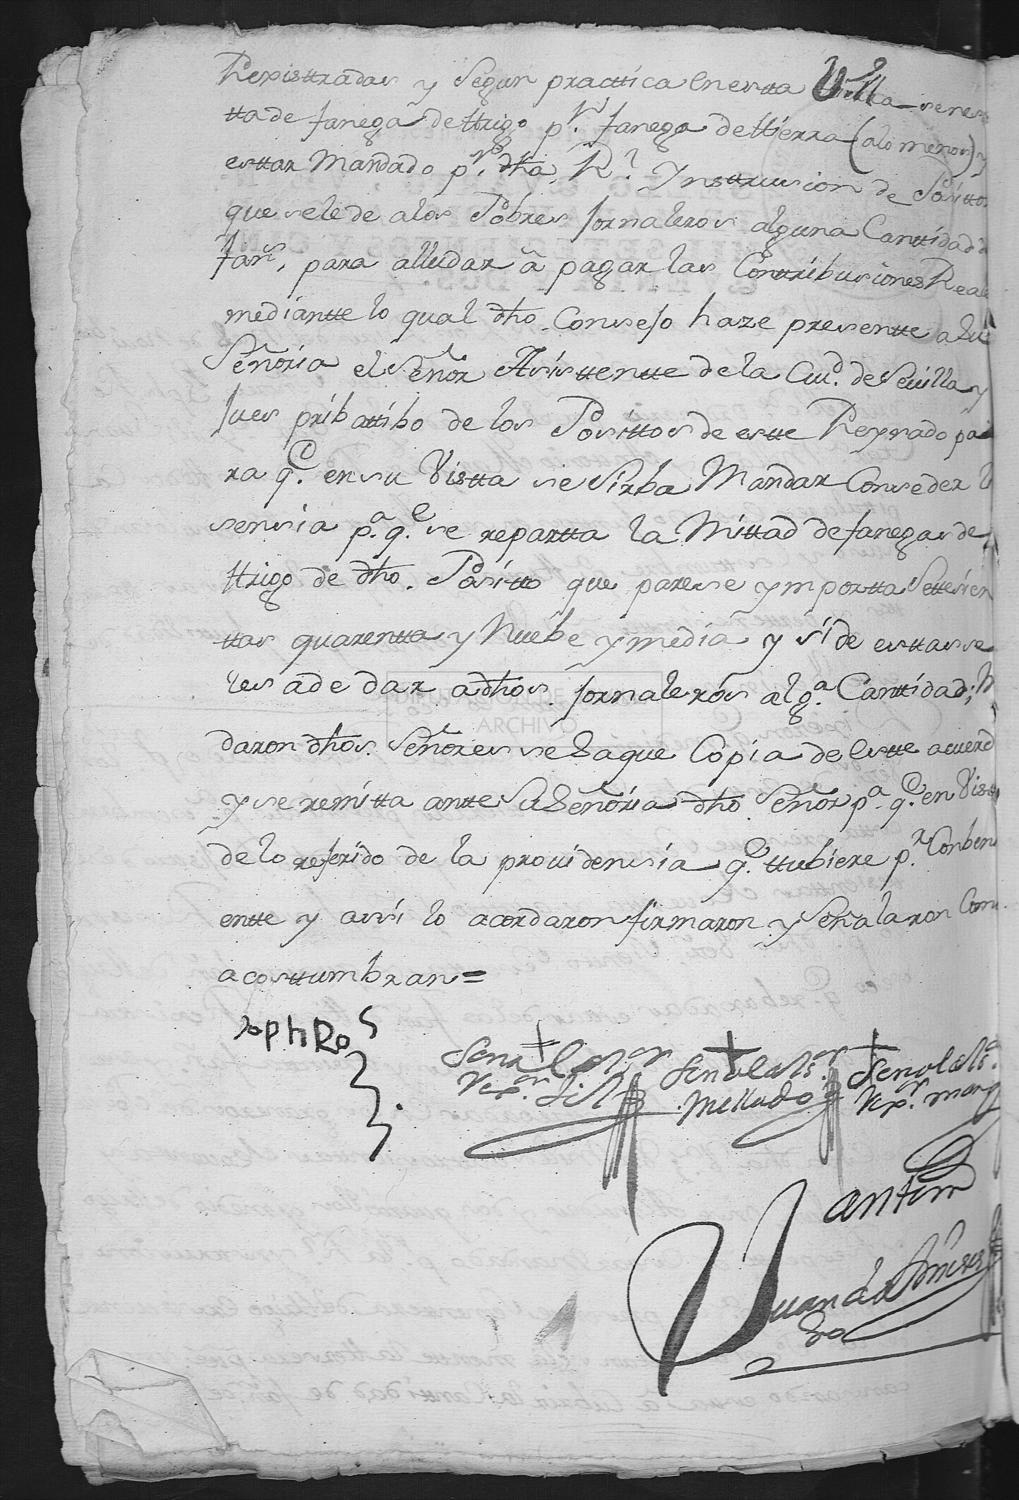 Rexisttradas y Segun practtica en estta Villa se nesesi
tta de fanega de ttrigo p.r fanega de ttierra (a lo menos) y
esttar Mandado p.r dha R.l Ynstrusion de Posittos
que se le de a los Pobres Jornaleros alguna Canttidad de
fan.s para alludar â pagar las Conttribusiones Reales
mediantte lo qual dho. Consejo haze presentte a Su
Señoria el Señor Asisttentte de la Ciud. de Sevilla y
Jues pribattibo de los Posittos de este Reynado pa
ra q.e en su Vistta se Sirba Mandar Conseder li
sensia p.a q.e se repartta la Mittad de fanegas de
ttrigo de dho. Positto que parese ymportta Settesien
ttas quarentta y Nuebe y media y si de esttas se
les a de dar a dhos. Jornaleros alg.a Canttidad; M
daron dhos. Señores se Saque Copia de estte acuerd
y se remitta antte Su Señoria dho. Señor p.a q.e en Vistt
de lo referido de la providensia q.e ttubiere p.r Conbeni
entte y assi lo acordaron firmaron y Señalaron Com
acosttumbran=
Señal del S.or Señ al del S.r Señal del S.r
Rex.or Mellado Rex.or
Antemi
Juan de